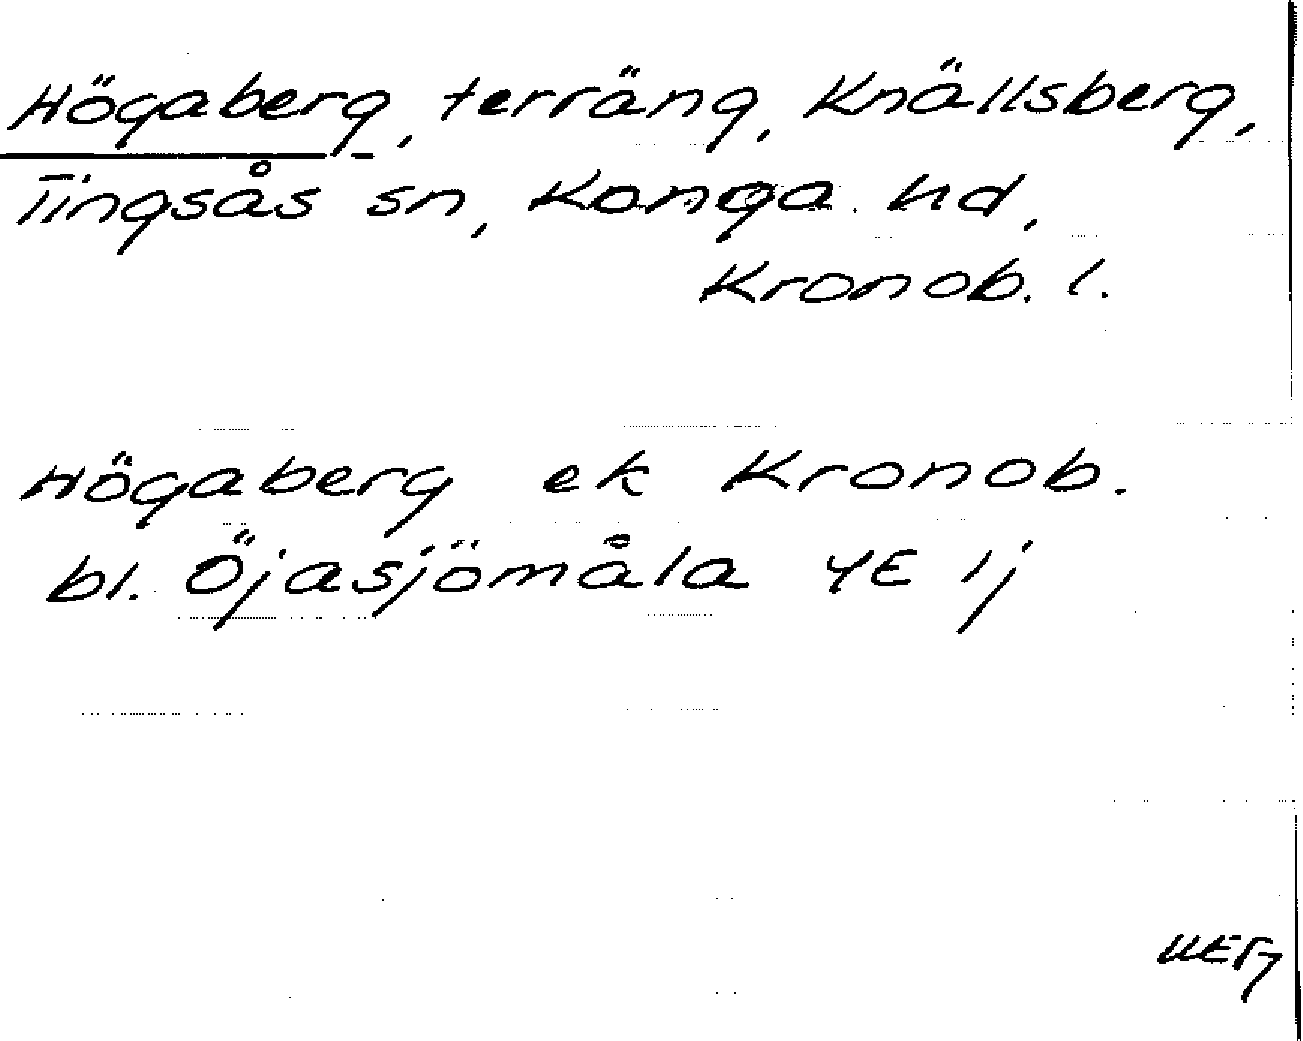 Högaberg, terräng, Knällsberg,
Tingsås sn, Konga hd,
Kronob. l.
Högaberg ek Kronob.
bl. Öjasjömåla 4E 1j